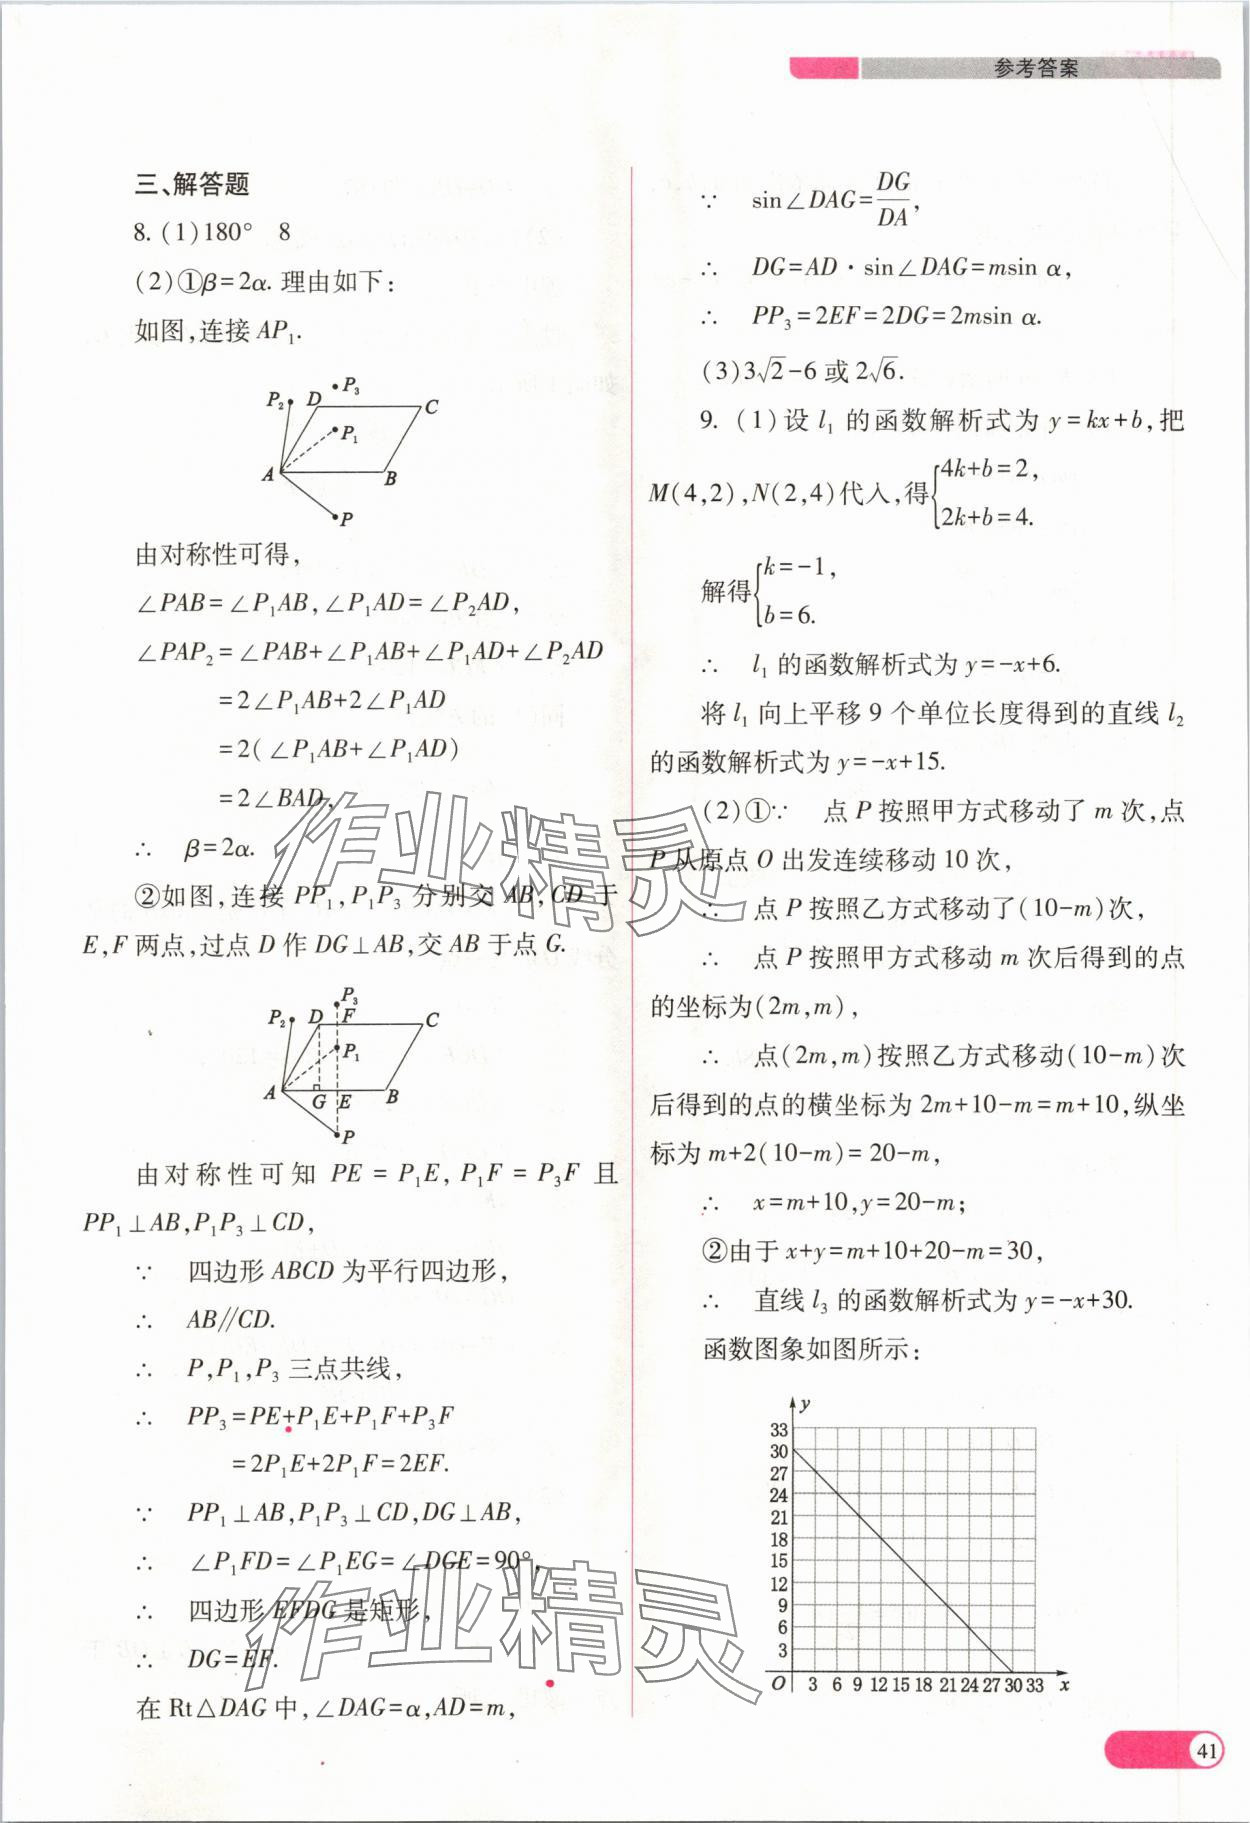 参考答案
三、解答题
8. (1)180°　8
(2)①β=2α. 理由如下:
如图,连接 AP₁.
P₂ D P₃ C
P₁
A B
P
由对称性可得,
∠PAB=∠P₁AB,∠P₁AD=∠P₂AD,
∠PAP₂=∠PAB+∠P₁AB+∠P₁AD+∠P₂AD
=2∠P₁AB+2∠P₁AD
=2(∠P₁AB+∠P₁AD)
=2∠BAD,
∴　β=2α.
②如图,连接 PP₁,P₁P₃ 分别交 AB,CD 于
E,F 两点,过点 D 作 DG⊥AB,交 AB 于点 G.
P₃
P₂ D F C
P₁
A G E B
P
由对称性可知 PE=P₁E,P₁F=P₃F 且
PP₁⊥AB,P₁P₃⊥CD,
∵　四边形 ABCD 为平行四边形,
∴　AB∥CD.
∴　P,P₁,P₃ 三点共线,
∴　PP₃=PE+P₁E+P₁F+P₃F
=2P₁E+2P₁F=2EF.
∵　PP₁⊥AB,P₁P₃⊥CD,DG⊥AB,
∴　∠P₁FD=∠P₁EG=∠DGE=90°,
∴　四边形 EFDG 是矩形,
∴　DG=EF.
在 Rt△DAG 中,∠DAG=α,AD=m,
∵　sin∠DAG=DG/DA,
∴　DG=AD·sin∠DAG=msin α,
∴　PP₃=2EF=2DG=2msin α.
(3)3√2-6 或 2√6.
9. (1)设 l₁ 的函数解析式为 y=kx+b,把
M(4,2),N(2,4)代入,得{4k+b=2,
2k+b=4.
解得{k=-1,
b=6.
∴　l₁ 的函数解析式为 y=-x+6.
将 l₁ 向上平移 9 个单位长度得到的直线 l₂
的函数解析式为 y=-x+15.
(2)①∵　点 P 按照甲方式移动了 m 次,点
P 从原点 O 出发连续移动 10 次,
∴　点 P 按照乙方式移动了(10-m)次,
∴　点 P 按照甲方式移动 m 次后得到的点
的坐标为(2m,m),
∴　点(2m,m)按照乙方式移动(10-m)次
后得到的点的横坐标为 2m+10-m=m+10,纵坐
标为 m+2(10-m)=20-m,
∴　x=m+10,y=20-m;
②由于 x+y=m+10+20-m=30,
∴　直线 l₃ 的函数解析式为 y=-x+30.
函数图象如图所示:
y
33
30
27
24
21
18
15
12
9
6
3
O 3 6 9 12 15 18 21 24 27 30 33 x
41
作业精灵
作业精灵